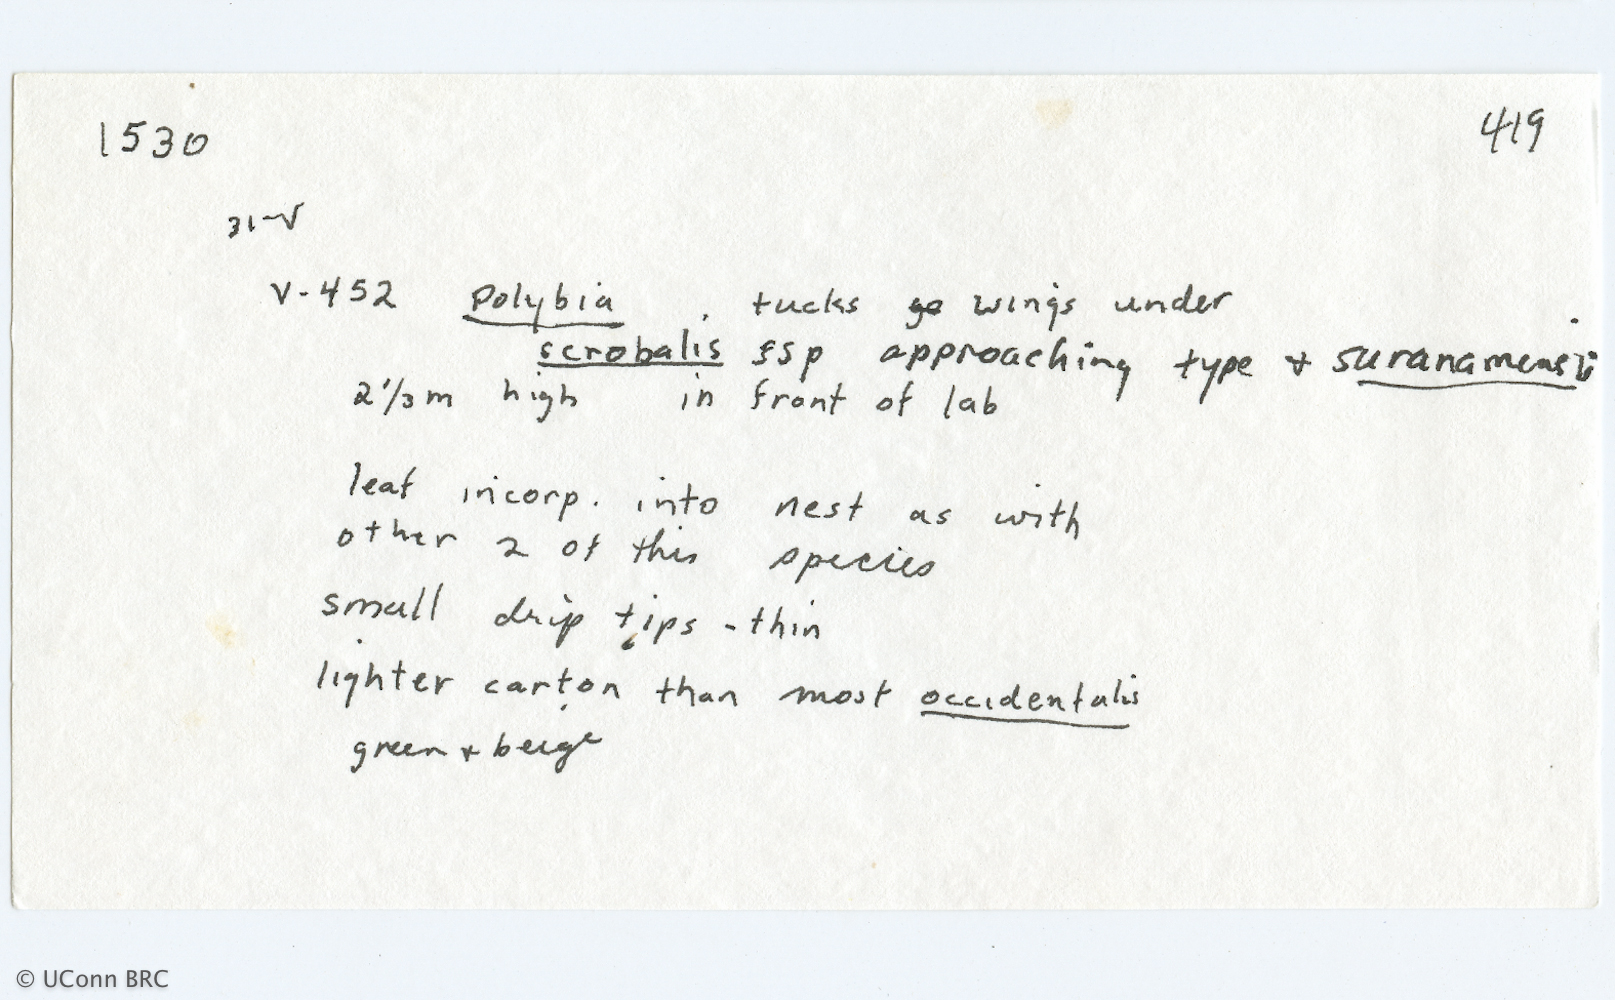 1530 419
31-V
V-452 Polybia tucks wings under
scrobalis ssp approaching type + suranamensis
2 1/3 m high in front of lab
leaf incorp. into nest as with
other 2 of this species
small drip tips - thin
lighter carton than most occidentalis
green + beige
© UConn BRC